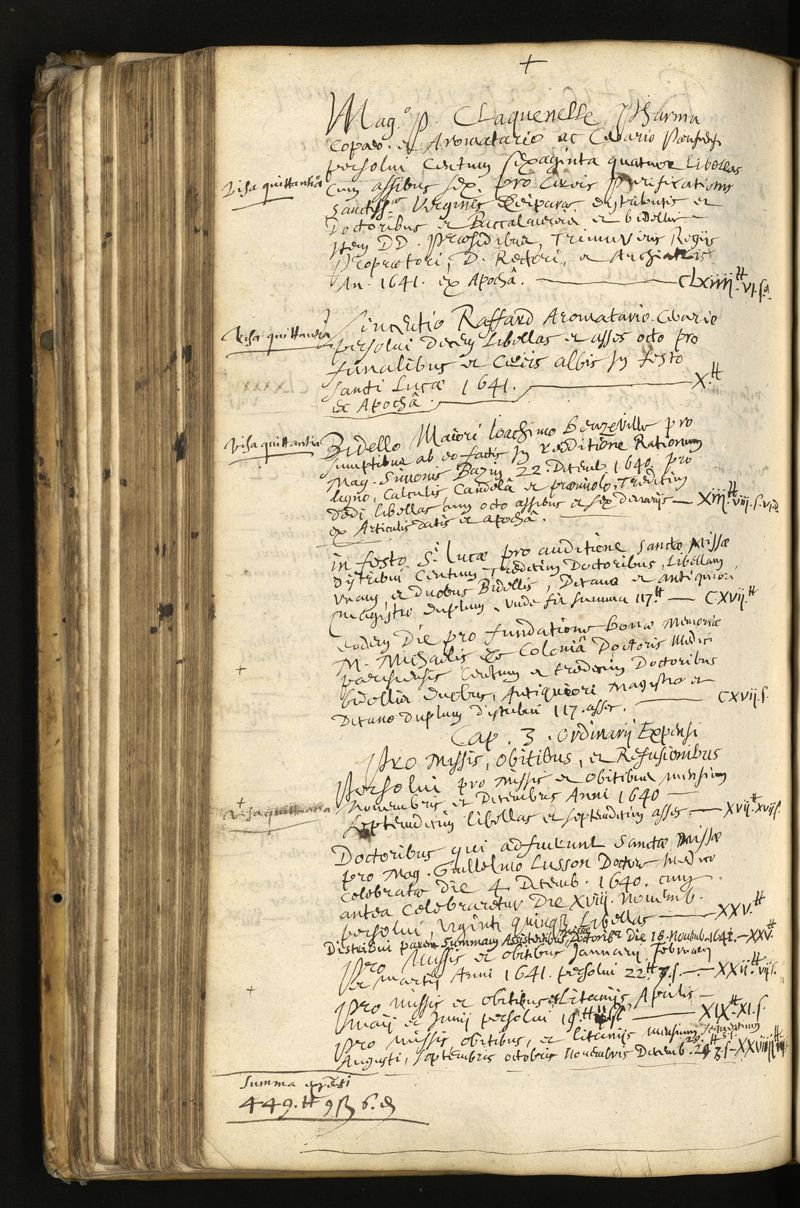 +
Mag.o P. Claquenelle Pharma
copaeo et Aromatario ac Cerario
persolui Centum sexaginta quatuor Libellas
Visa quittantia
cum assibus sex, pro Cereis Purificationis
Sanctiss Virginis Deiparae distributis et
Doctoribus et Baccalaureis et bidellis
Item DD. Praesidibus, Triumviris Regijs
Propraetori, D. Rectori, et Archiatris
An. 1641. ex Apochâ. — CLxiiij.tt vj.s.
Visa quittantia
Raffard Aromatario Cerario
persolui decem Libellas et asses octo pro
funalibus et Cereis albis In festo
Sancti Lucae 1641. — X.tt
ex Apochâ.
Visa quittantia
Bidello Maiori Ioachimo Benzeville pro
sumptibus ab eo factis In redditione Rationum
Mag. Simonis Bazin 22. Decemb. 1640. pro
ligno, Calculis Candelâ et Tredecim
dedi libellas cum octo assibus et sex denarijs — Xiij.tt viij.s. vj.d
ex Articulis datis et apochâ.
in festo S.i Lucae pro auditione sanctae Missae
Distribui Centum Tredecim Doctoribus, Libellam
vnam, et duobus Bidellis, Decano et antiquiori
magistro duplum, vnde fit summa 117.tt — CXVij.tt
eodem Die pro fundatione bonae memoriae
M. Michaelis de Coloniâ Doctoris Medici
parisiensis Centum et tredecim Doctoribus
bidellis duobus, Antiquiori Magistro et
Decano duplum distribui 117. asses. — CXVij.s.
Cap. 3. Ordinarij Expensi
Pro Missis, Obitibus, et Refusionibus
Persolui pro missis et obitibus mensium
Novembris et Decembris Anni 1640 —
Visa quittantia
Septemdecim libellas et septemdecim asses — XVij.tt xvij s.
Doctoribus qui adfuerunt Sanctae Missae
pro Mag. Guillelmo Lusson Doctore Medico
Celebratae die 4 Decemb. 1640. cum
antea celebraretur Die XViij. Novemb.
persolui, viginti quinque Libellas — XXV.tt
Distribui parem Summam Assistentibus Doctorib. Die 18. Novemb. 1641. — XXV.tt
Pro Missis et obitibus Januarij, februarij
et martij Anni 1641. persolui 22.tt 7.s. — XXij.tt vij s.
Pro missis et obitibus et Litanijs, Aprilis
Maij et Junij persolui 19.tt — XIX.tt XI.s.
Pro missis obitibus, et litanijs mensium
Augusti, Septembris octobris Novembris Decemb.
Summa expensi
449.tt 9ß 6.d